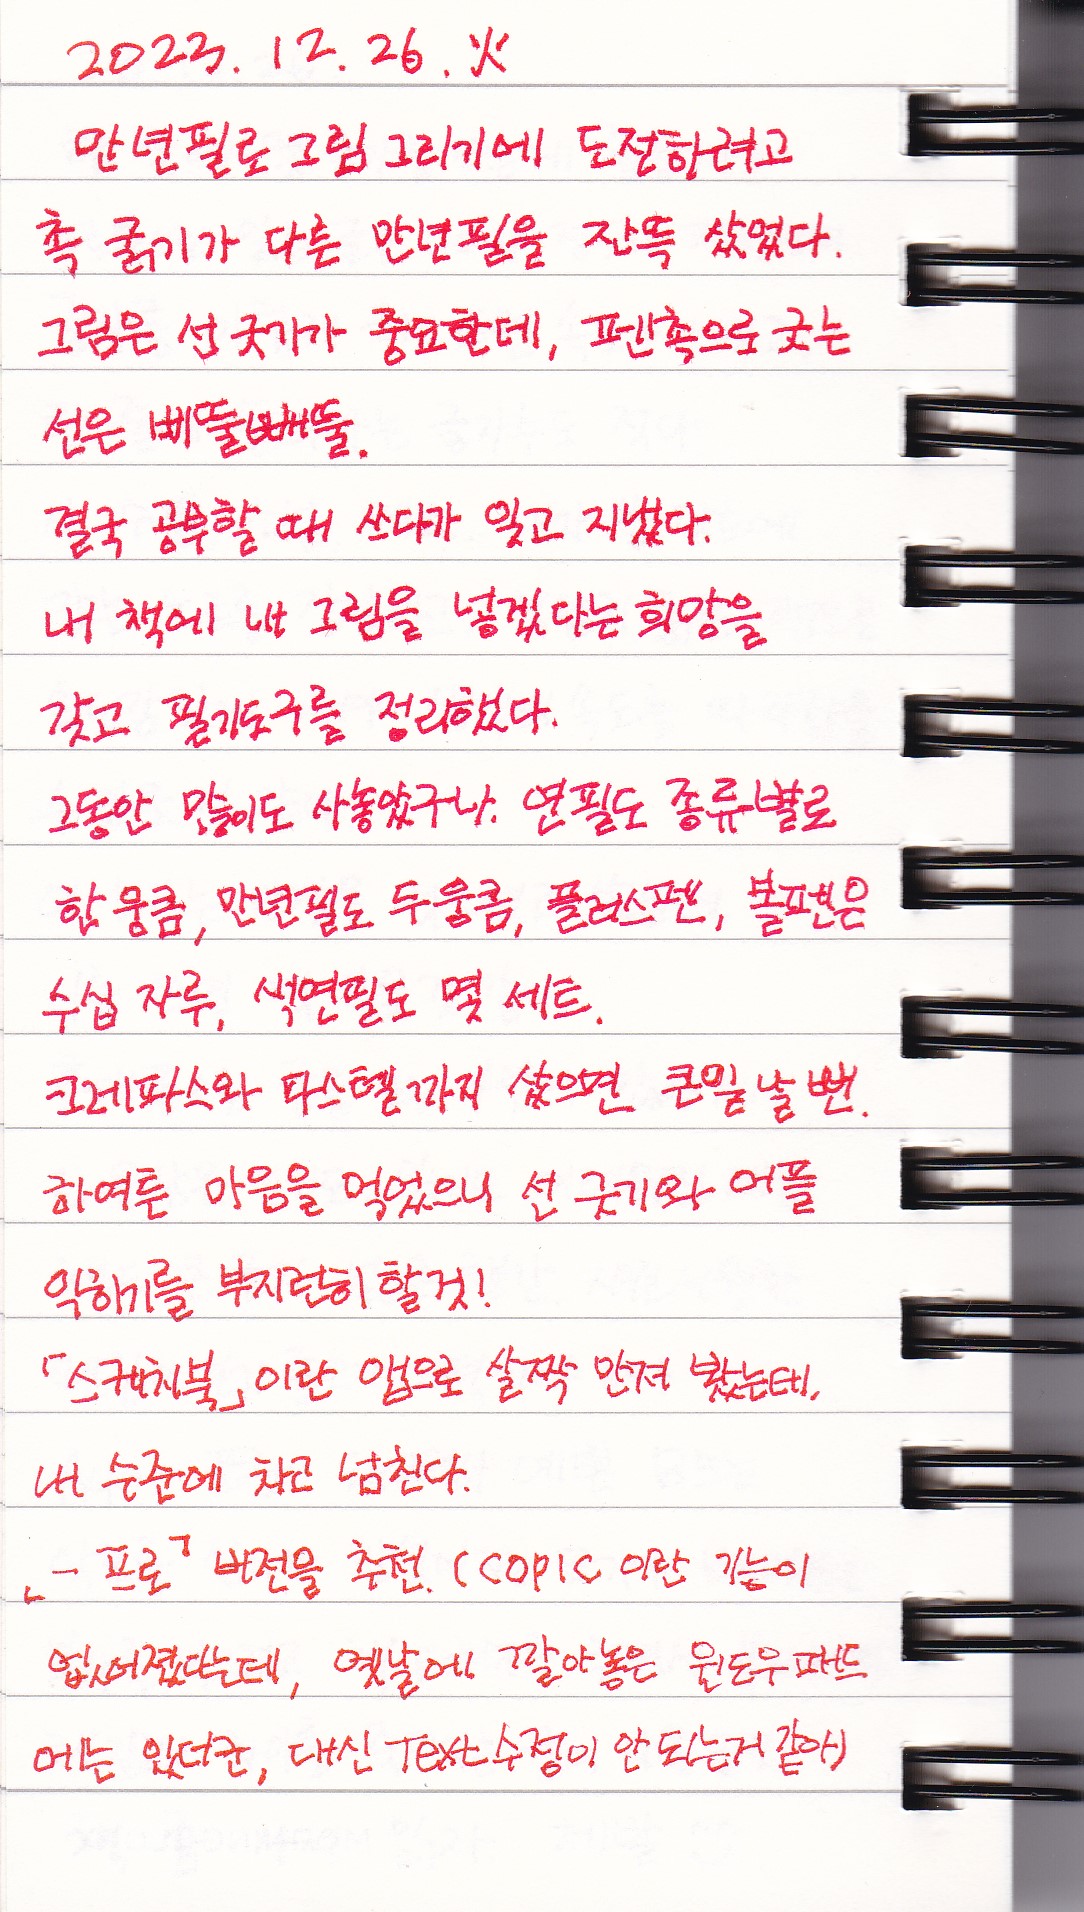 2023. 12. 26. 火
만년필로 그림 그리기에 도전하려고
촉 굵기가 다른 만년필을 잔뜩 샀었다.
그림은 선 긋기가 중요한데, 펜촉으로 긋는
선은 삐뚤빼뚤.
결국 공부할 때 쓰다가 잊고 지냈다.
내 책에 내 그림을 넣겠다는 희망을
갖고 필기도구를 정리했다.
그동안 많이도 사놓았구나. 연필도 종류별로
한 웅큼, 만년필도 두 웅큼, 플러스펜, 볼펜은
수십 자루, 색연필도 몇 세트.
크레파스와 파스텔까지 샀으면 큰일 날 뻔.
하여튼 마음을 먹었으니 선 긋기와 어플
익히기를 부지런히 할 것!
「스케치북」이란 앱으로 살짝 만져 봤는데,
내 수준에 차고 넘친다.
「- 프로」 버전을 추천. (COPIC 이란 기능이
없어졌다는데, 옛날에 깔아놓은 윈도우패드
에는 있더군, 대신 Text 수정이 안 되는거 같아)